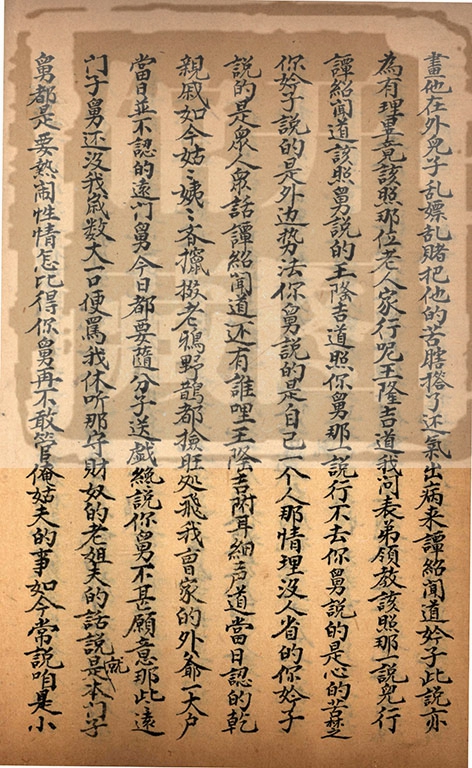 畫他在外兒子乱嫖乱賭把他的苦腌搭了还氣出病来譚紹聞道妗子此說亦
為有理畢竟該照那位老人家行呢王隆吉道我问表弟領教該照那一說兒行
譚紹聞道該照舅說的王隆吉道照你舅那一說行不去你舅說的是心的苦楚
你妗子說的是外边势法你舅說的是自己一个人那情理没人省的你妗子
說的是衆人衆話譚紹聞道还有誰哩王隆吉附耳細声道當日認的乾
親戚如今姑〻姨〻各攛掇老鴉野鵲都撿旺处飛我曹家的外爺一大户
當日並不認的遠门舅今日都要隨分子送戲絶說你舅不甚願意那些遠
门子舅还没我歲数大一口便罵我休听那守財奴的老姐夫的話說就是本门子
舅都是要熱闹性情怎比得你舅再不敢管俺姑夫的事如今常說咱是小